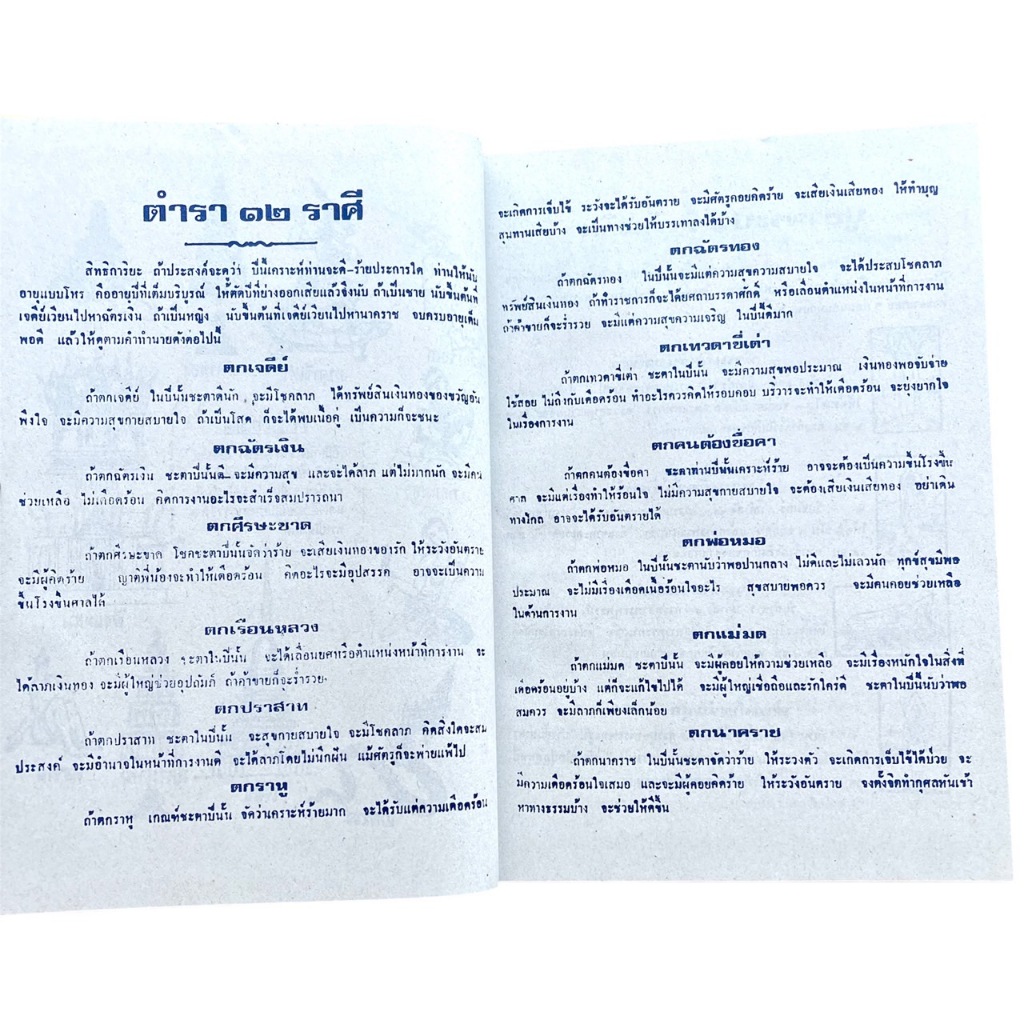 ตำรา ๑๒ ราศี
สิทธิการิยะ ถ้าประสงค์จะดูว่า ปีนี้เคราะห์ท่านจะดี-ร้ายประการใด ท่านให้นับ
อายุแบบโหร คืออายุปีที่เต็มบริบูรณ์ ให้ตัดปีที่ย่างออกเสียแล้วจึงนับ ถ้าเป็นชาย นับขึ้นต้นที่
เจดีย์เวียนไปหาฉัตรเงิน ถ้าเป็นหญิง นับขึ้นต้นที่เจดีย์เวียนไปหานาคราช จบครบอายุเต็ม
พอดี แล้วให้ดูตามคำทำนายดังต่อไปนี้
ตกเจดีย์
ถ้าตกเจดีย์ ในปีนั้นชะตาดีนัก จะมีโชคลาภ ได้ทรัพย์สินเงินทองของขวัญอัน
พึงใจ จะมีความสุขกายสบายใจ ถ้าเป็นโสด ก็จะได้พบเนื้อคู่ เป็นความก็จะชนะ
ตกฉัตรเงิน
ถ้าตกฉัตรเงิน ชะตาปีนั้นดี จะมีความสุข และจะได้ลาภ แต่ไม่มากนัก จะมีคน
ช่วยเหลือ ไม่เดือดร้อน คิดการงานอะไรจะสำเร็จสมปรารถนา
ตกศีรษะขาด
ถ้าตกศีรษะขาด โชคชะตาปีนั้นจัดว่าร้าย จะเสียเงินทองของรัก ให้ระวังอันตราย
จะมีผู้คิดร้าย ญาติพี่น้องจะทำให้เดือดร้อน คิดอะไรจะมีอุปสรรค อาจจะเป็นความ
ขึ้นโรงขึ้นศาลได้
ตกเรือนหลวง
ถ้าตกเรือนหลวง ชะตาในปีนั้น จะได้เลื่อนยศหรือตำแหน่งหน้าที่การงาน จะ
ได้ลาภเงินทอง จะมีผู้ใหญ่ช่วยอุปถัมภ์ ถ้าค้าขายก็จะร่ำรวย
ตกปราสาท
ถ้าตกปราสาท ชะตาในปีนั้น จะสุขกายสบายใจ จะมีโชคลาภ คิดสิ่งใดจะสม
ประสงค์ จะมีอำนาจในหน้าที่การงานดี จะได้ลาภโดยไม่นึกฝัน แม้ศัตรูก็จะพ่ายแพ้ไป
ตกราหู
ถ้าตกราหู เกณฑ์ชะตาปีนั้น จัดว่าเคราะห์ร้ายมาก จะได้รับแต่ความเดือดร้อน
จะเกิดการเจ็บไข้ ระวังจะได้รับอันตราย จะมีศัตรูคอยคิดร้าย จะเสียเงินเสียทอง ให้ทำบุญ
สุนทานเสียบ้าง จะเป็นทางช่วยให้บรรเทาลงได้บ้าง
ตกฉัตรทอง
ถ้าตกฉัตรทอง ในปีนั้นจะมีแต่ความสุขความสบายใจ จะได้ประสบโชคลาภ
ทรัพย์สินเงินทอง ถ้าทำราชการก็จะได้ยศถาบรรดาศักดิ์ หรือเลื่อนตำแหน่งในหน้าที่การงาน
ถ้าค้าขายก็จะร่ำรวย จะมีแต่ความสุขความเจริญ ในปีนี้ดีมาก
ตกเทวดาขี่เต่า
ถ้าตกเทวดาขี่เต่า ชะตาในปีนั้น จะมีความสุขพอประมาณ เงินทองพอจับจ่าย
ใช้สอย ไม่ถึงกับเดือดร้อน ทำอะไรควรคิดให้รอบคอบ บริวารจะทำให้เดือดร้อน จะยุ่งยากใจ
ในเรื่องการงาน
ตกคนต้องขื่อคา
ถ้าตกคนต้องขื่อคา ชะตาท่านปีนั้นเคราะห์ร้าย อาจจะต้องเป็นความขึ้นโรงขึ้น
ศาล จะมีแต่เรื่องทำให้ร้อนใจ ไม่มีความสุขกายสบายใจ จะต้องเสียเงินเสียทอง อย่าเดิน
ทางไกล อาจจะได้รับอันตรายได้
ตกพ่อหมอ
ถ้าตกพ่อหมอ ในปีนั้นชะตานับว่าพอปานกลาง ไม่ดีและไม่เลวนัก ทุกข์สุขมีพอ
ประมาณ จะไม่มีเรื่องเดือดเนื้อร้อนใจอะไร สุขสบายพอควร จะมีคนคอยช่วยเหลือ
ในด้านการงาน
ตกแม่มด
ถ้าตกแม่มด ชะตาปีนั้น จะมีผู้คอยให้ความช่วยเหลือ จะมีเรื่องหนักใจในสิ่งที่
เดือดร้อนอยู่บ้าง แต่ก็จะแก้ไขไปได้ จะมีผู้ใหญ่เชื่อถือและรักใคร่ดี ชะตาในปีนี้นับว่าพอ
สมควร จะมีลาภก็เพียงเล็กน้อย
ตกนาคราช
ถ้าตกนาคราช ในปีนั้นชะตาจัดว่าร้าย ให้ระวังตัว จะเกิดการเจ็บไข้ได้ป่วย จะ
มีความเดือดร้อนใจเสมอ และจะมีผู้คอยคิดร้าย ให้ระวังอันตราย จงตั้งจิตทำกุศลหันเข้า
หาทางธรรมบ้าง จะช่วยให้ดีขึ้น